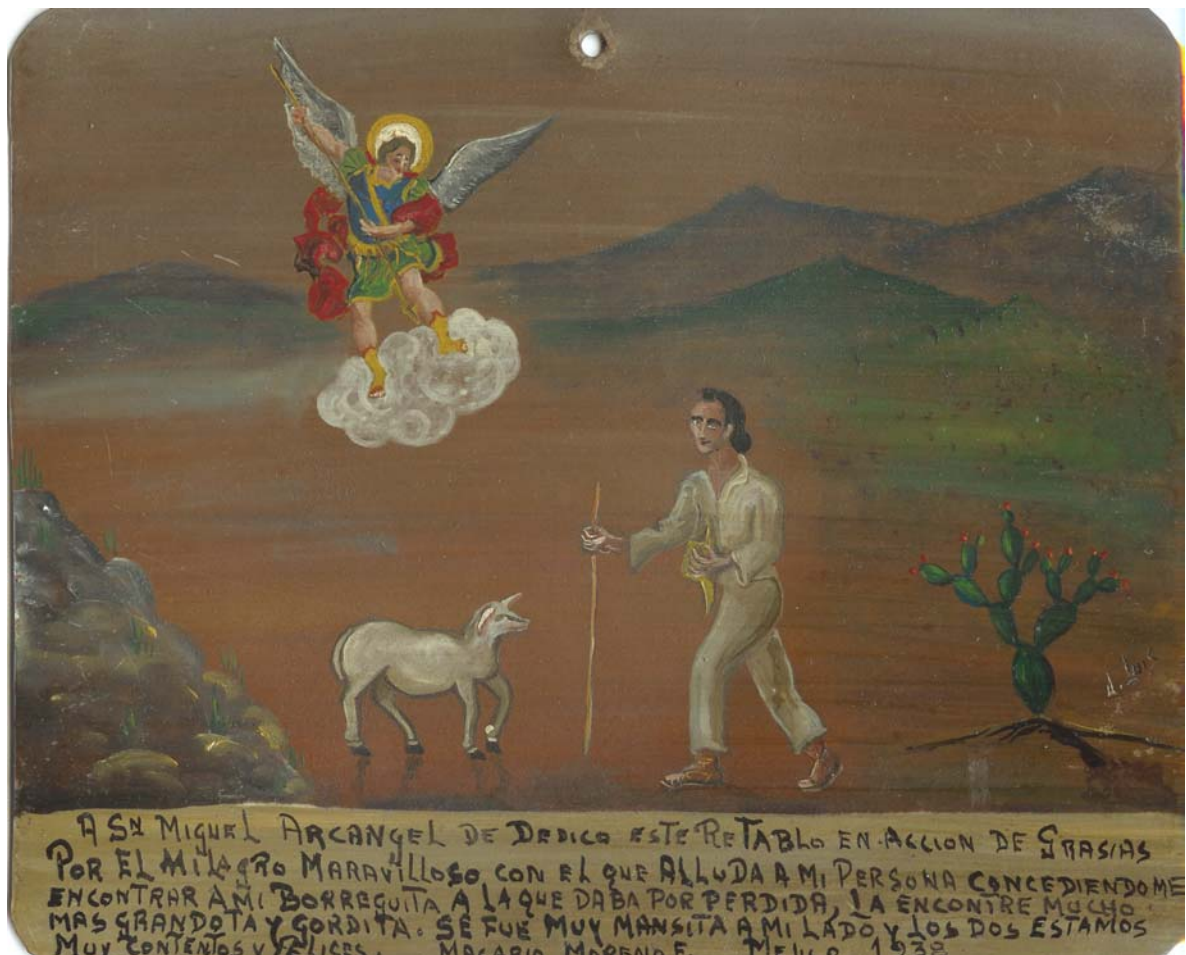 A Sn MIGUEL ARCANGEL DE DEDICO ESTE RETABLO EN ACCION DE GRASIAS
POR EL MILAGRO MARAVILLOSO CON EL QUE ALLUDA A MI PERSONA CONCEDIENDOME
ENCONTRAR A MI BORREGUITA A LA QUE DABA POR PERDIDA, LA ENCONTRE MUCHO
MAS GRANDOTA Y GORDITA. SE FUE MUY MANSITA A MI LADO Y LOS DOS ESTAMOS
MUY CONTENTOS Y FELICES. MACARIO MORENO F. MEJICO 1938